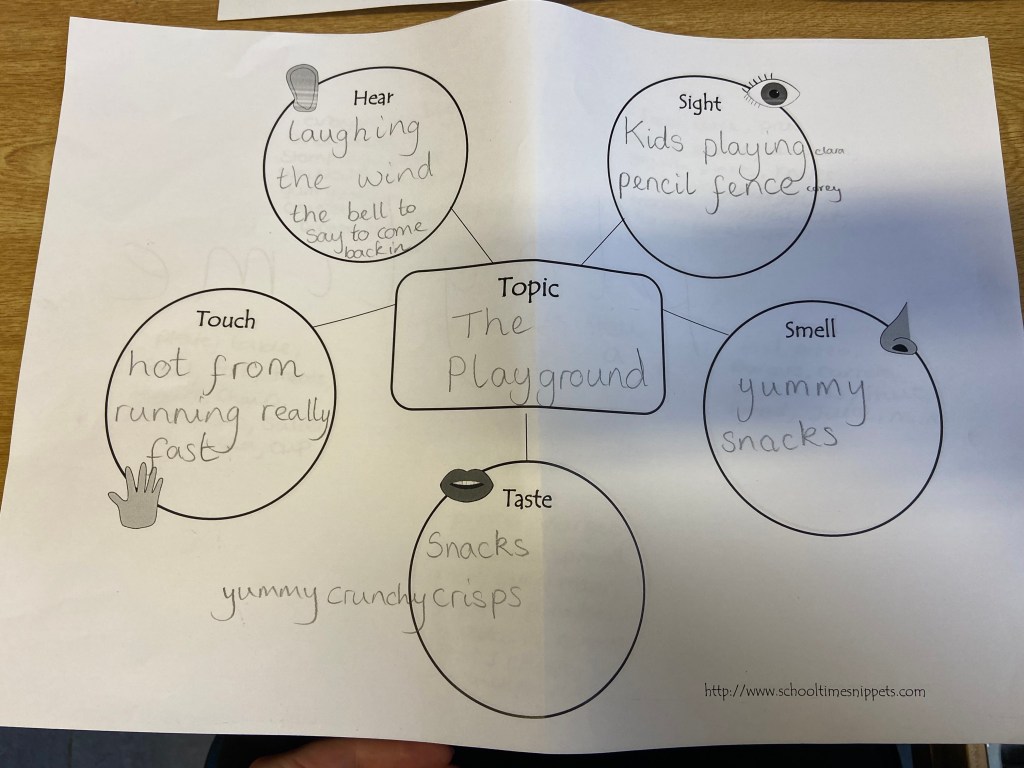 Hear
laughing
the wind
the bell to
say to come
back in
Sight
Kids playing clara
pencil fence corey
Topic
The
Playground
Touch
hot from
running really
fast
Smell
yummy
snacks
Taste
Snacks
yummy crunchy crisps
http://www.schooltimesnippets.com